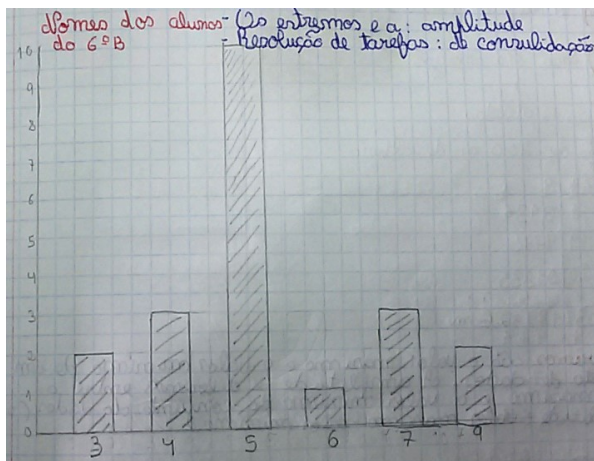 Nomes dos alunos
do 6º B
- Os estremos e a: amplitude
- Resolução de tarefas: de consulidação
10
9
8
7
6
5
4
3
2
1
0
3 4 5 6 7 9